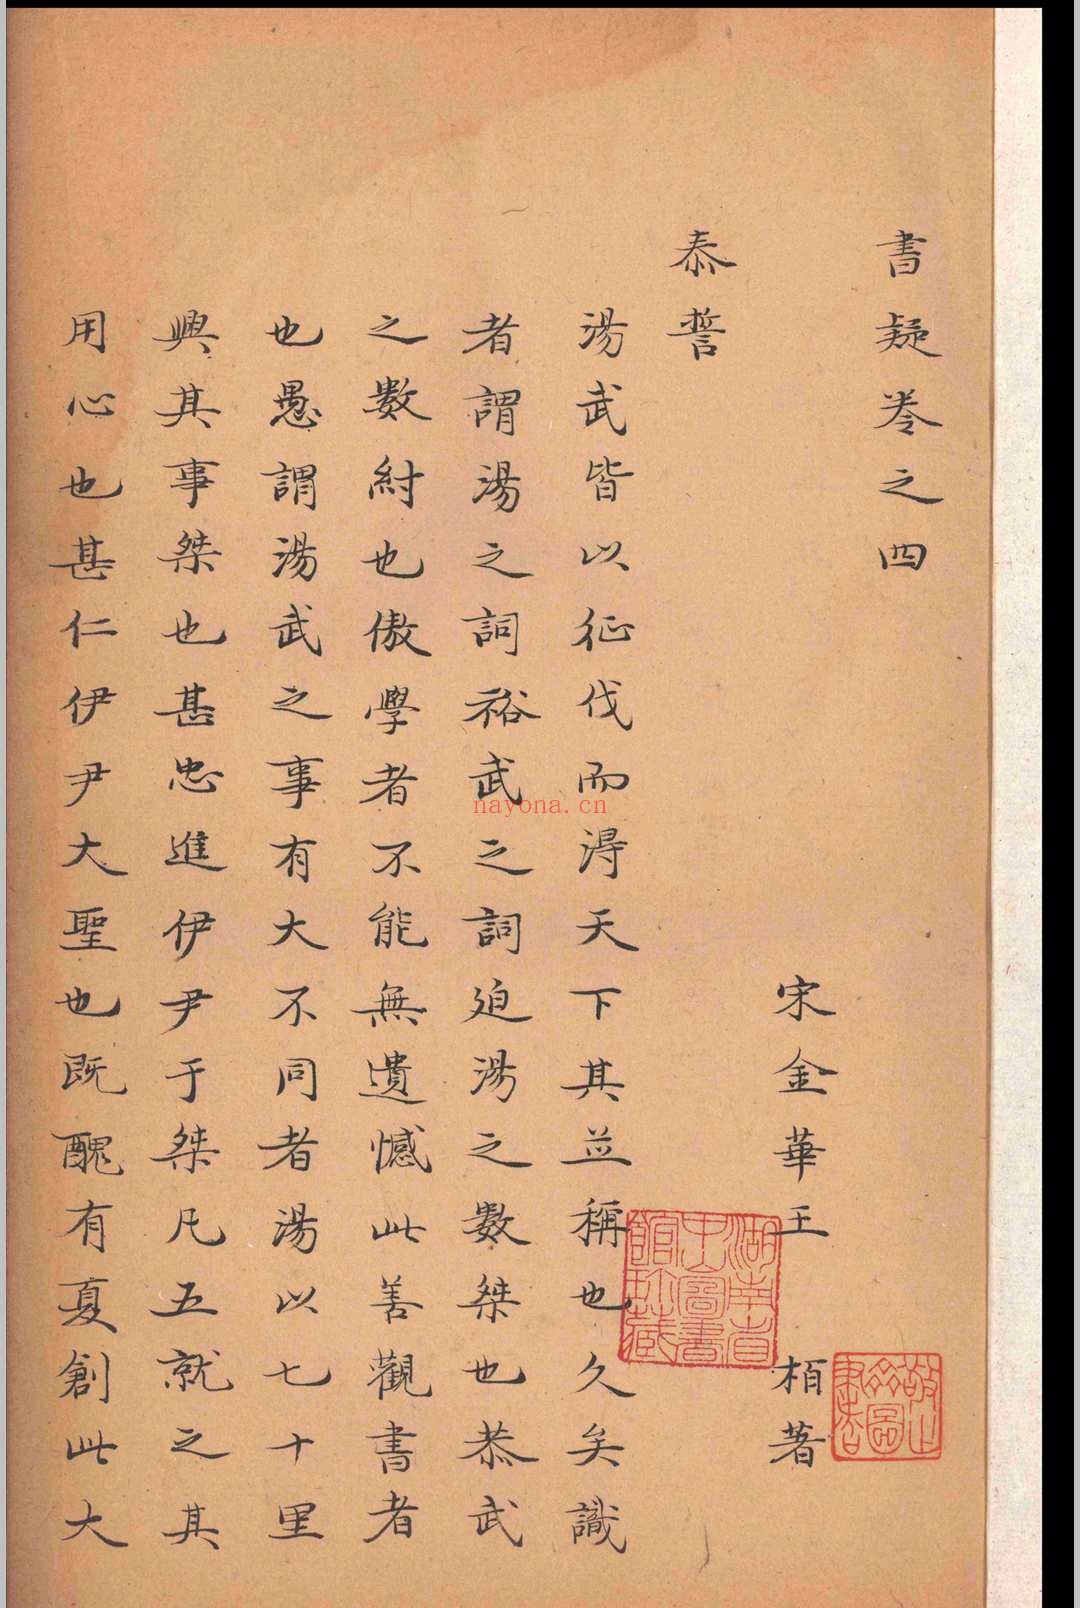 書疑卷之四
宋金華王柏著
泰誓
湯武皆以征伐而淂天下其並稱也久矣識
者謂湯之詞裕武之詞迫湯之數桀也恭武
之數紂也傲學者不能無遺憾此善觀書者
也愚謂湯武之事有大不同者湯以七十里
興其事桀也甚忠進伊尹于桀凡五就之其
用心也甚仁伊尹大聖也既醜有夏創此大
湖南省中山圖書館珍藏
nayona.cn